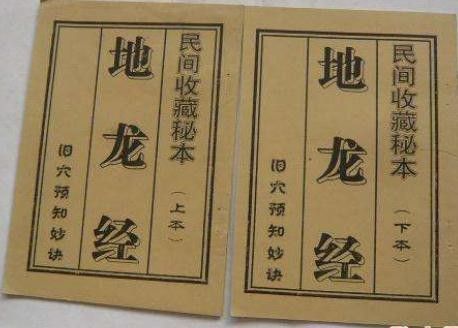 民间收藏秘本（上本）
地龙经
旧穴预知妙诀
民间收藏秘本（下本）
地龙经
旧穴预知妙诀